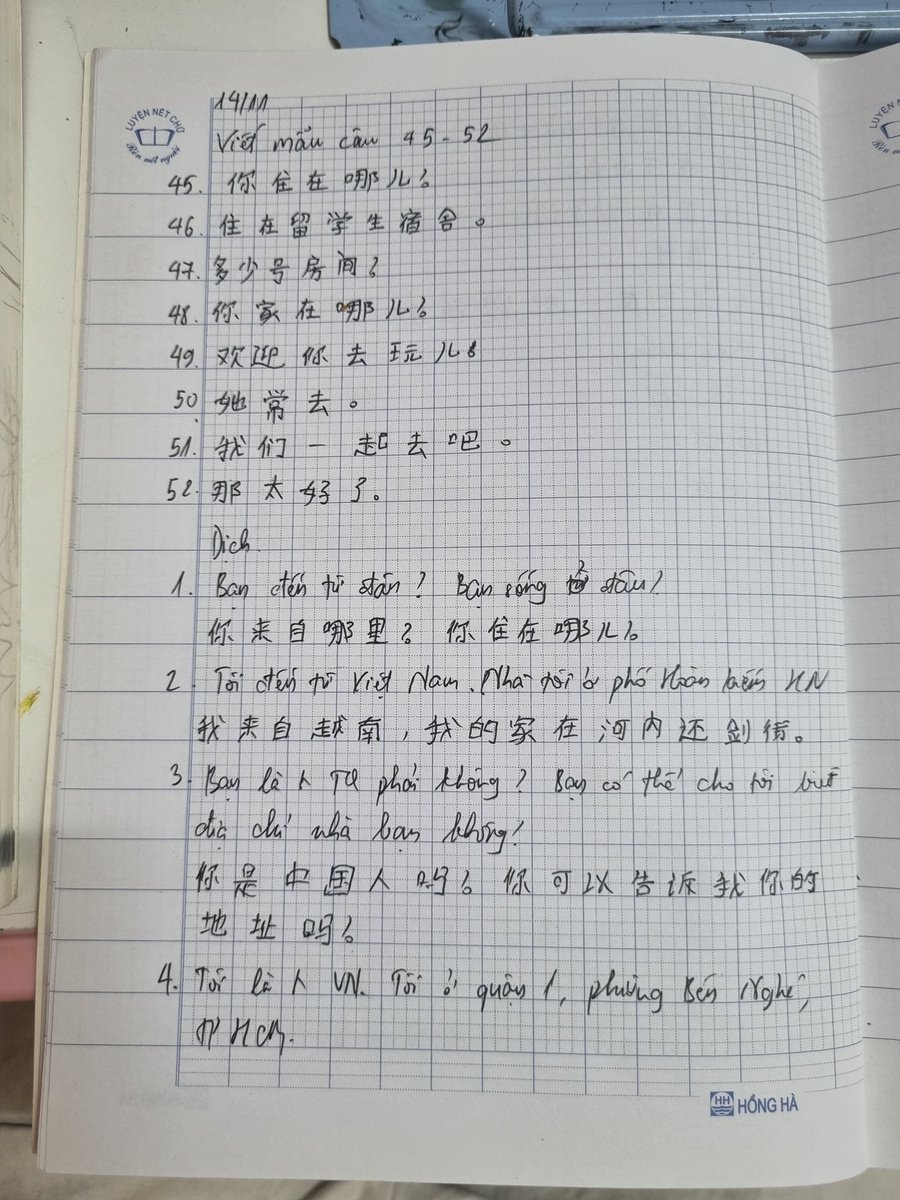 LUYỆN NÉT CHỮ
Rèn nết người
14/11
Viết mẫu câu 45-52
45. 你住在哪儿?
46. 住在留学生宿舍。
47. 多少号房间?
48. 你家在哪儿?
49. 欢迎你去玩儿。
50. 她常去。
51. 我们一起去吧。
52. 那太好了。
Dịch.
1. Bạn đến từ đâu? Bạn sống ở đâu?
你来自哪里? 你住在哪儿?
2. Tôi đến từ Việt Nam. Nhà tôi ở phố Hoàn kiếm HN
我来自越南,我的家在河内还剑街。
3. Bạn là 人 TQ phải không? Bạn có thể cho tôi biết
địa chỉ nhà bạn không?
你是中国人吗? 你可以告诉我你的
地址吗?
4. Tôi là 人 VN. Tôi ở quận 1, phường Bến Nghé,
TP HCM.
HH HỒNG HÀ